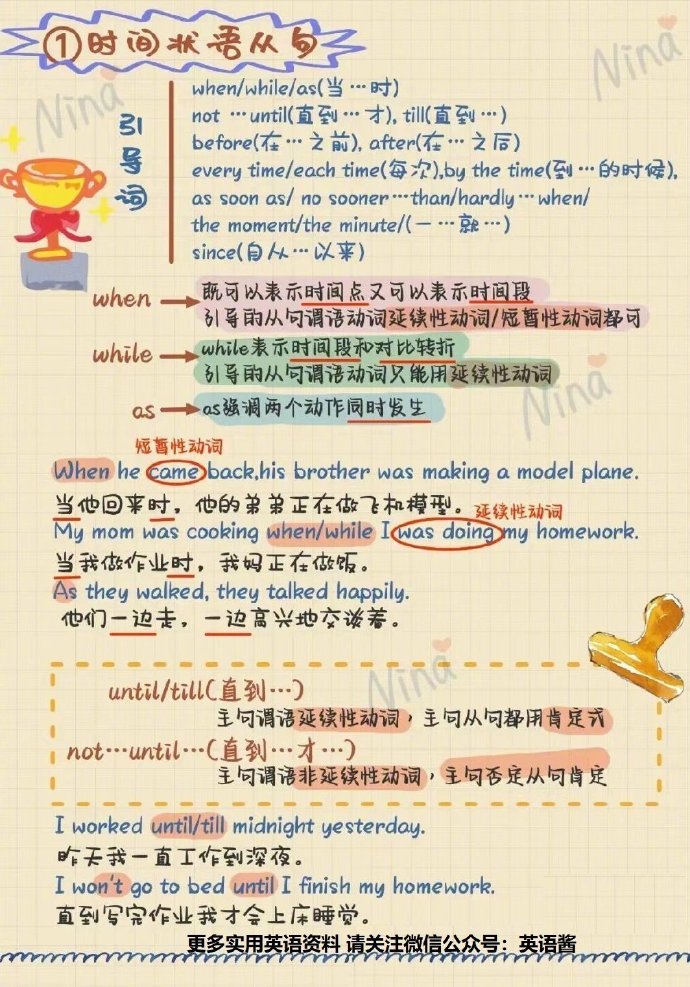 ①时间状语从句
Nina
Nina
引导词
when/while/as(当…时)
not …until(直到…才), till(直到…)
before(在…之前), after(在…之后)
every time/each time(每次),by the time(到…的时候),
as soon as/ no sooner…than/hardly…when/
the moment/the minute/(一…就…)
since(自从…以来)
when
既可以表示时间点又可以表示时间段
引导的从句谓语动词延续性动词/短暂性动词都可
while
while表示时间段和对比转折
引导的从句谓语动词只能用延续性动词
Nina
as
as强调两个动作同时发生
短暂性动词
When he came back,his brother was making a model plane.
当他回来时，他的弟弟正在做飞机模型。
延续性动词
My mom was cooking when/while I was doing my homework.
当我做作业时，我妈正在做饭。
As they walked, they talked happily.
他们一边走，一边高兴地交谈着。
Nina
until/till(直到…)
主句谓语延续性动词，主句从句都用肯定式
not…until…(直到…才…)
主句谓语非延续性动词，主句否定从句肯定
I worked until/till midnight yesterday.
昨天我一直工作到深夜。
I won't go to bed until I finish my homework.
直到写完作业我才会上床睡觉。
更多实用英语资料 请关注微信公众号：英语酱